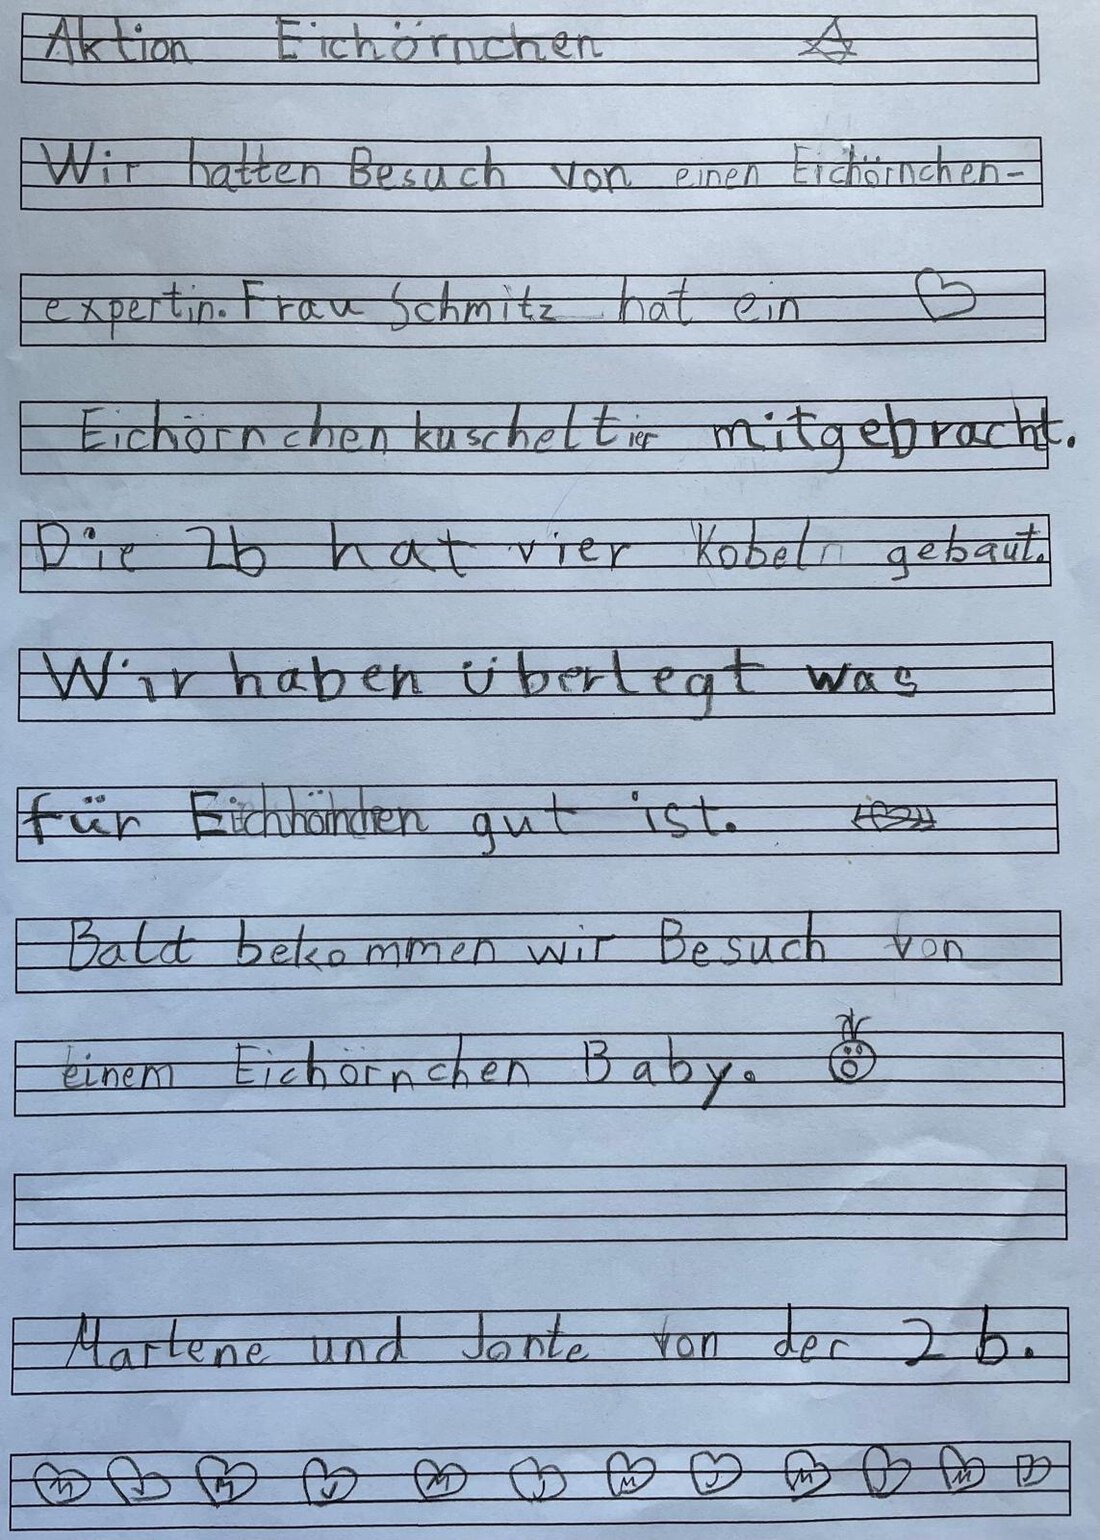 Aktion Eichörnchen
Wir hatten Besuch von einen Eichörnchen-
expertin. Frau Schmitz hat ein
Eichörnchenkuscheltier mitgebracht.
Die 2b hat vier Kobeln gebaut.
Wir haben überlegt was
für gut ist.
Bald bekommen wir Besuch von
einem Eichörnchen Baby.
Marlene und Jonte von der 2b.
M J M J M J M J M J M J